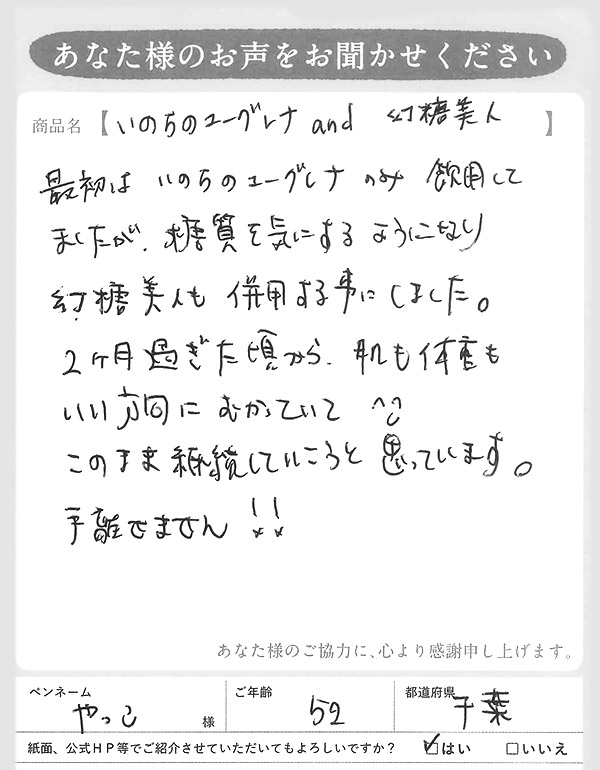 あなた様のお声をお聞かせください
商品名【いのちのユーグレナ and 幻糖美人】
最初は いのちのユーグレナ のみ 飲用して
ましたが、糖質を気にするようになり
幻糖美人も 併用する事にしました。
2ヶ月過ぎた頃から、肌も体重も
いい方向に むかっていて ^^
このまま継続していこうと思っています。
手離せません!!
あなた様のご協力に、心より感謝申し上げます。
ペンネーム やっこ 様 ご年齢 52 都道府県 千葉
紙面、公式HP等でご紹介させていただいてもよろしいですか? ☑はい □いいえ